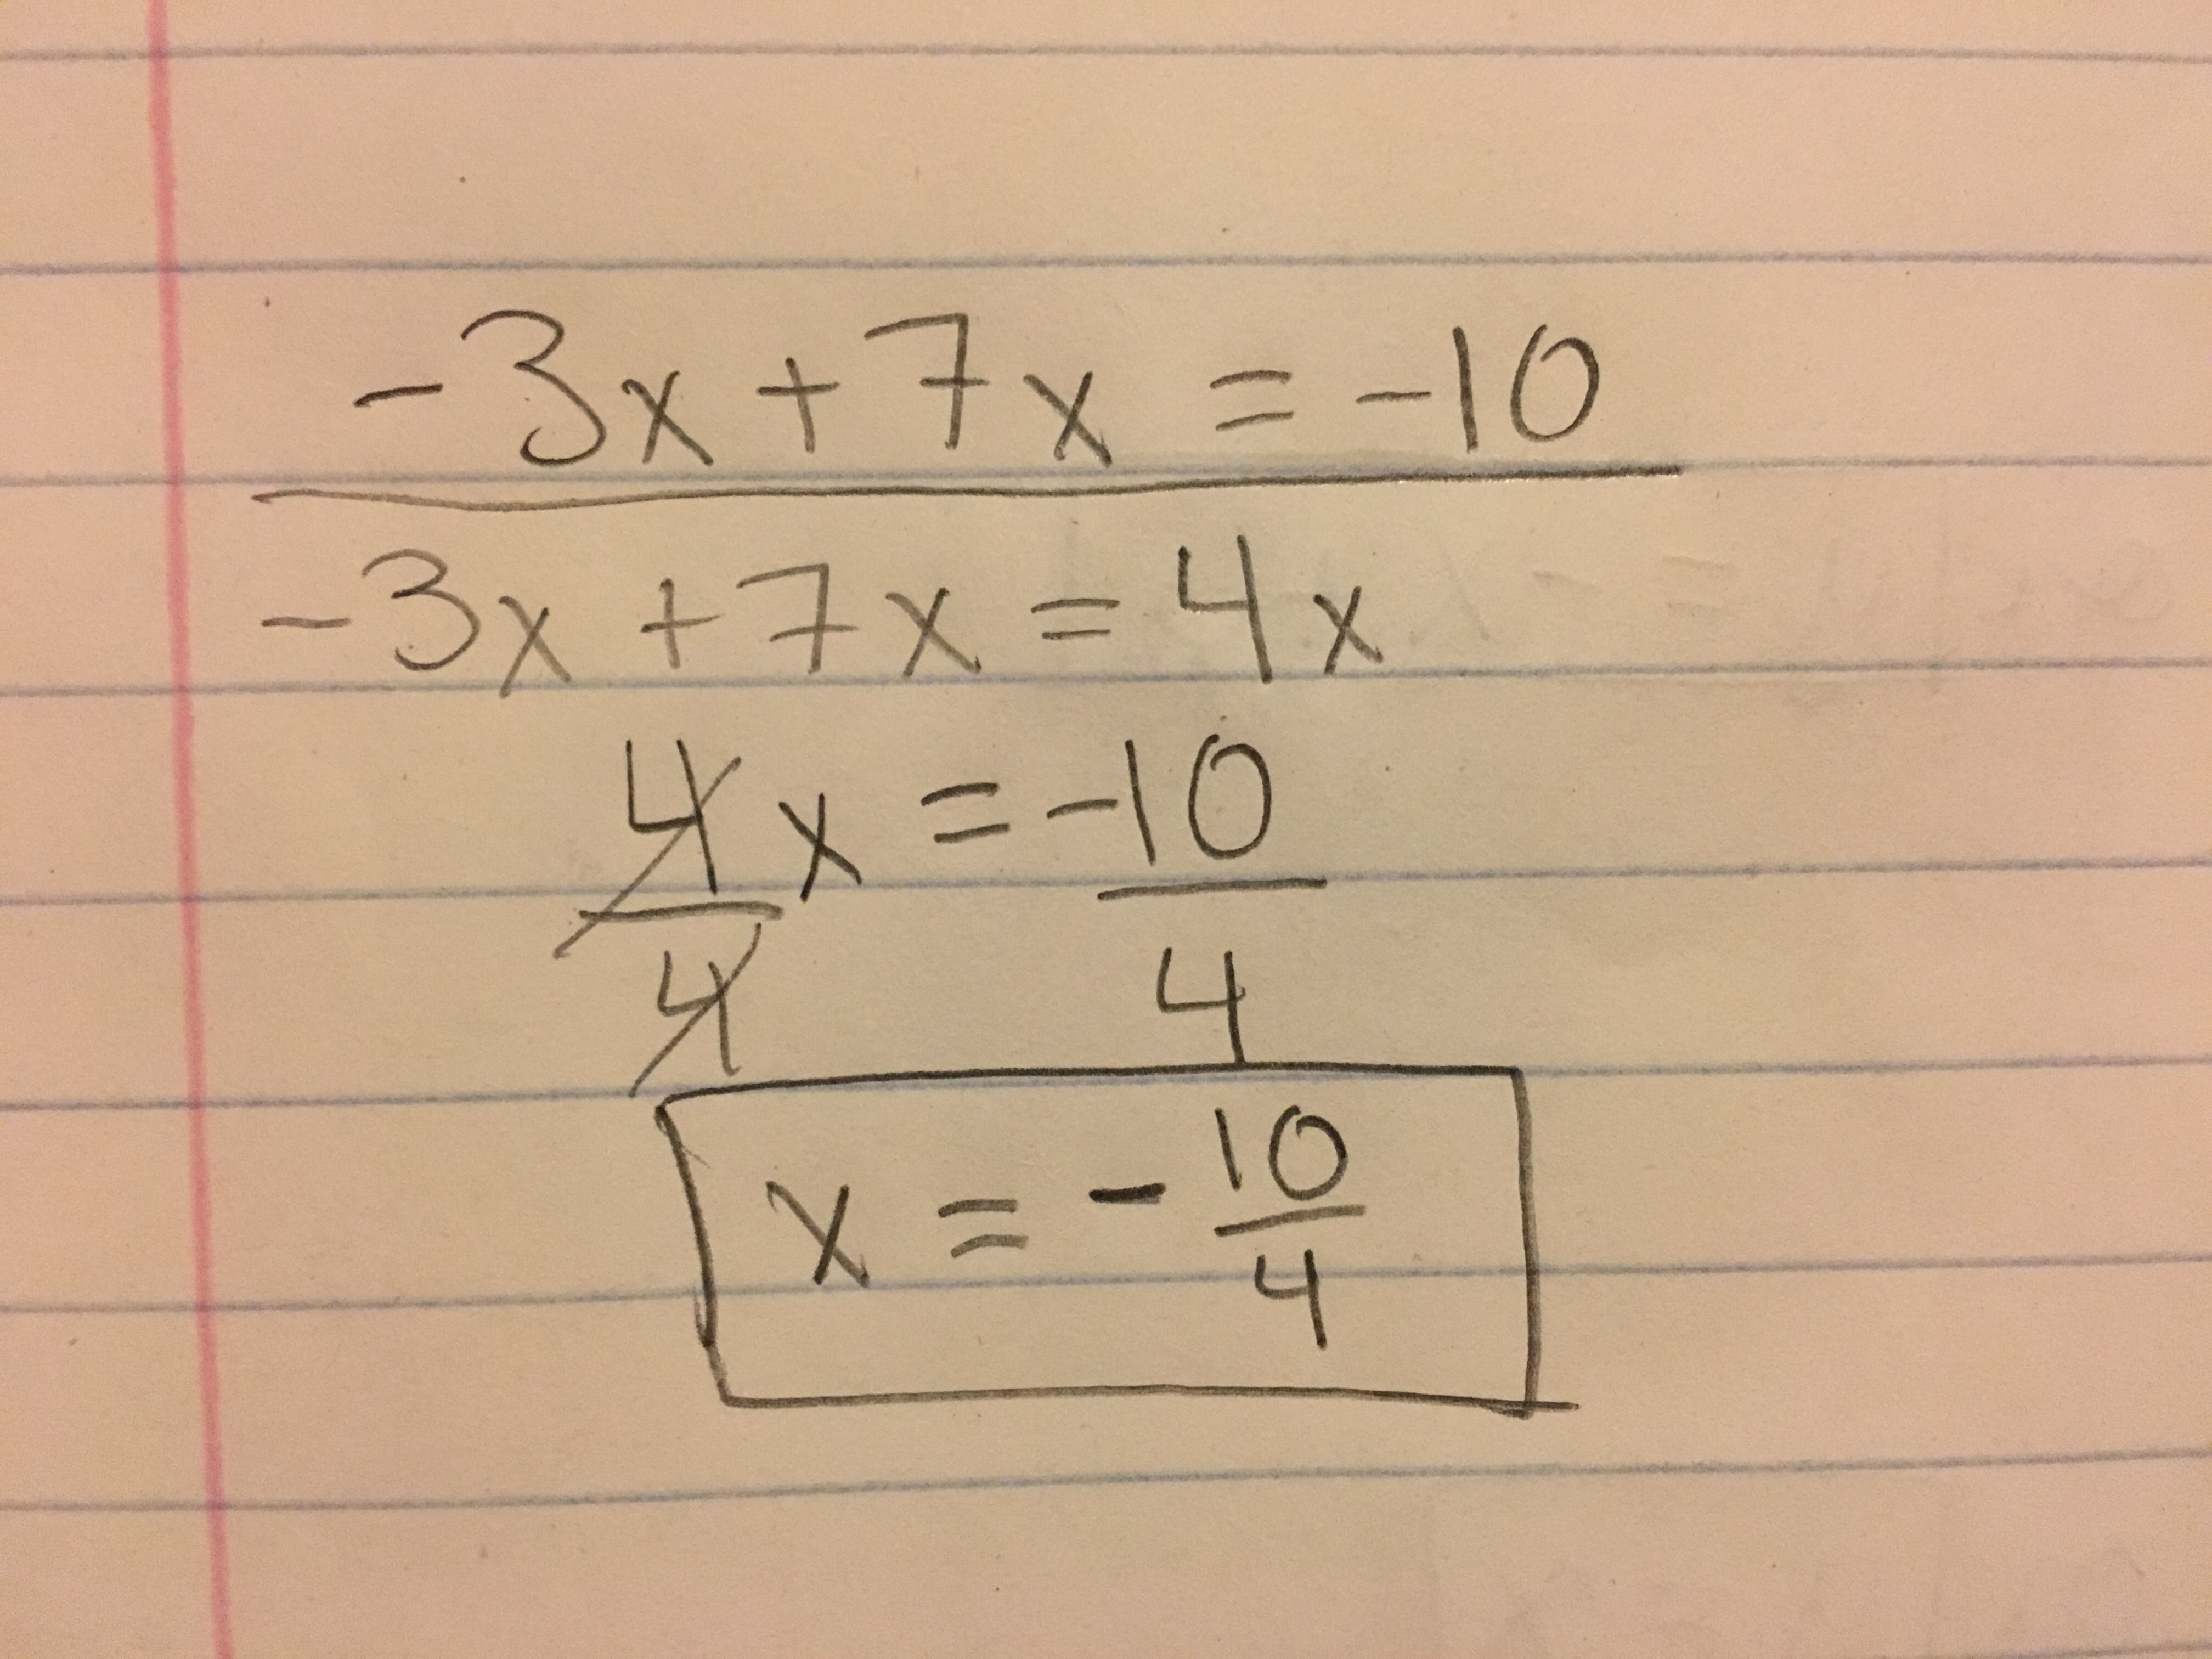 -3x + 7x = -10
-3x + 7x = 4x
4x = -10
4 4
x = - 10/4